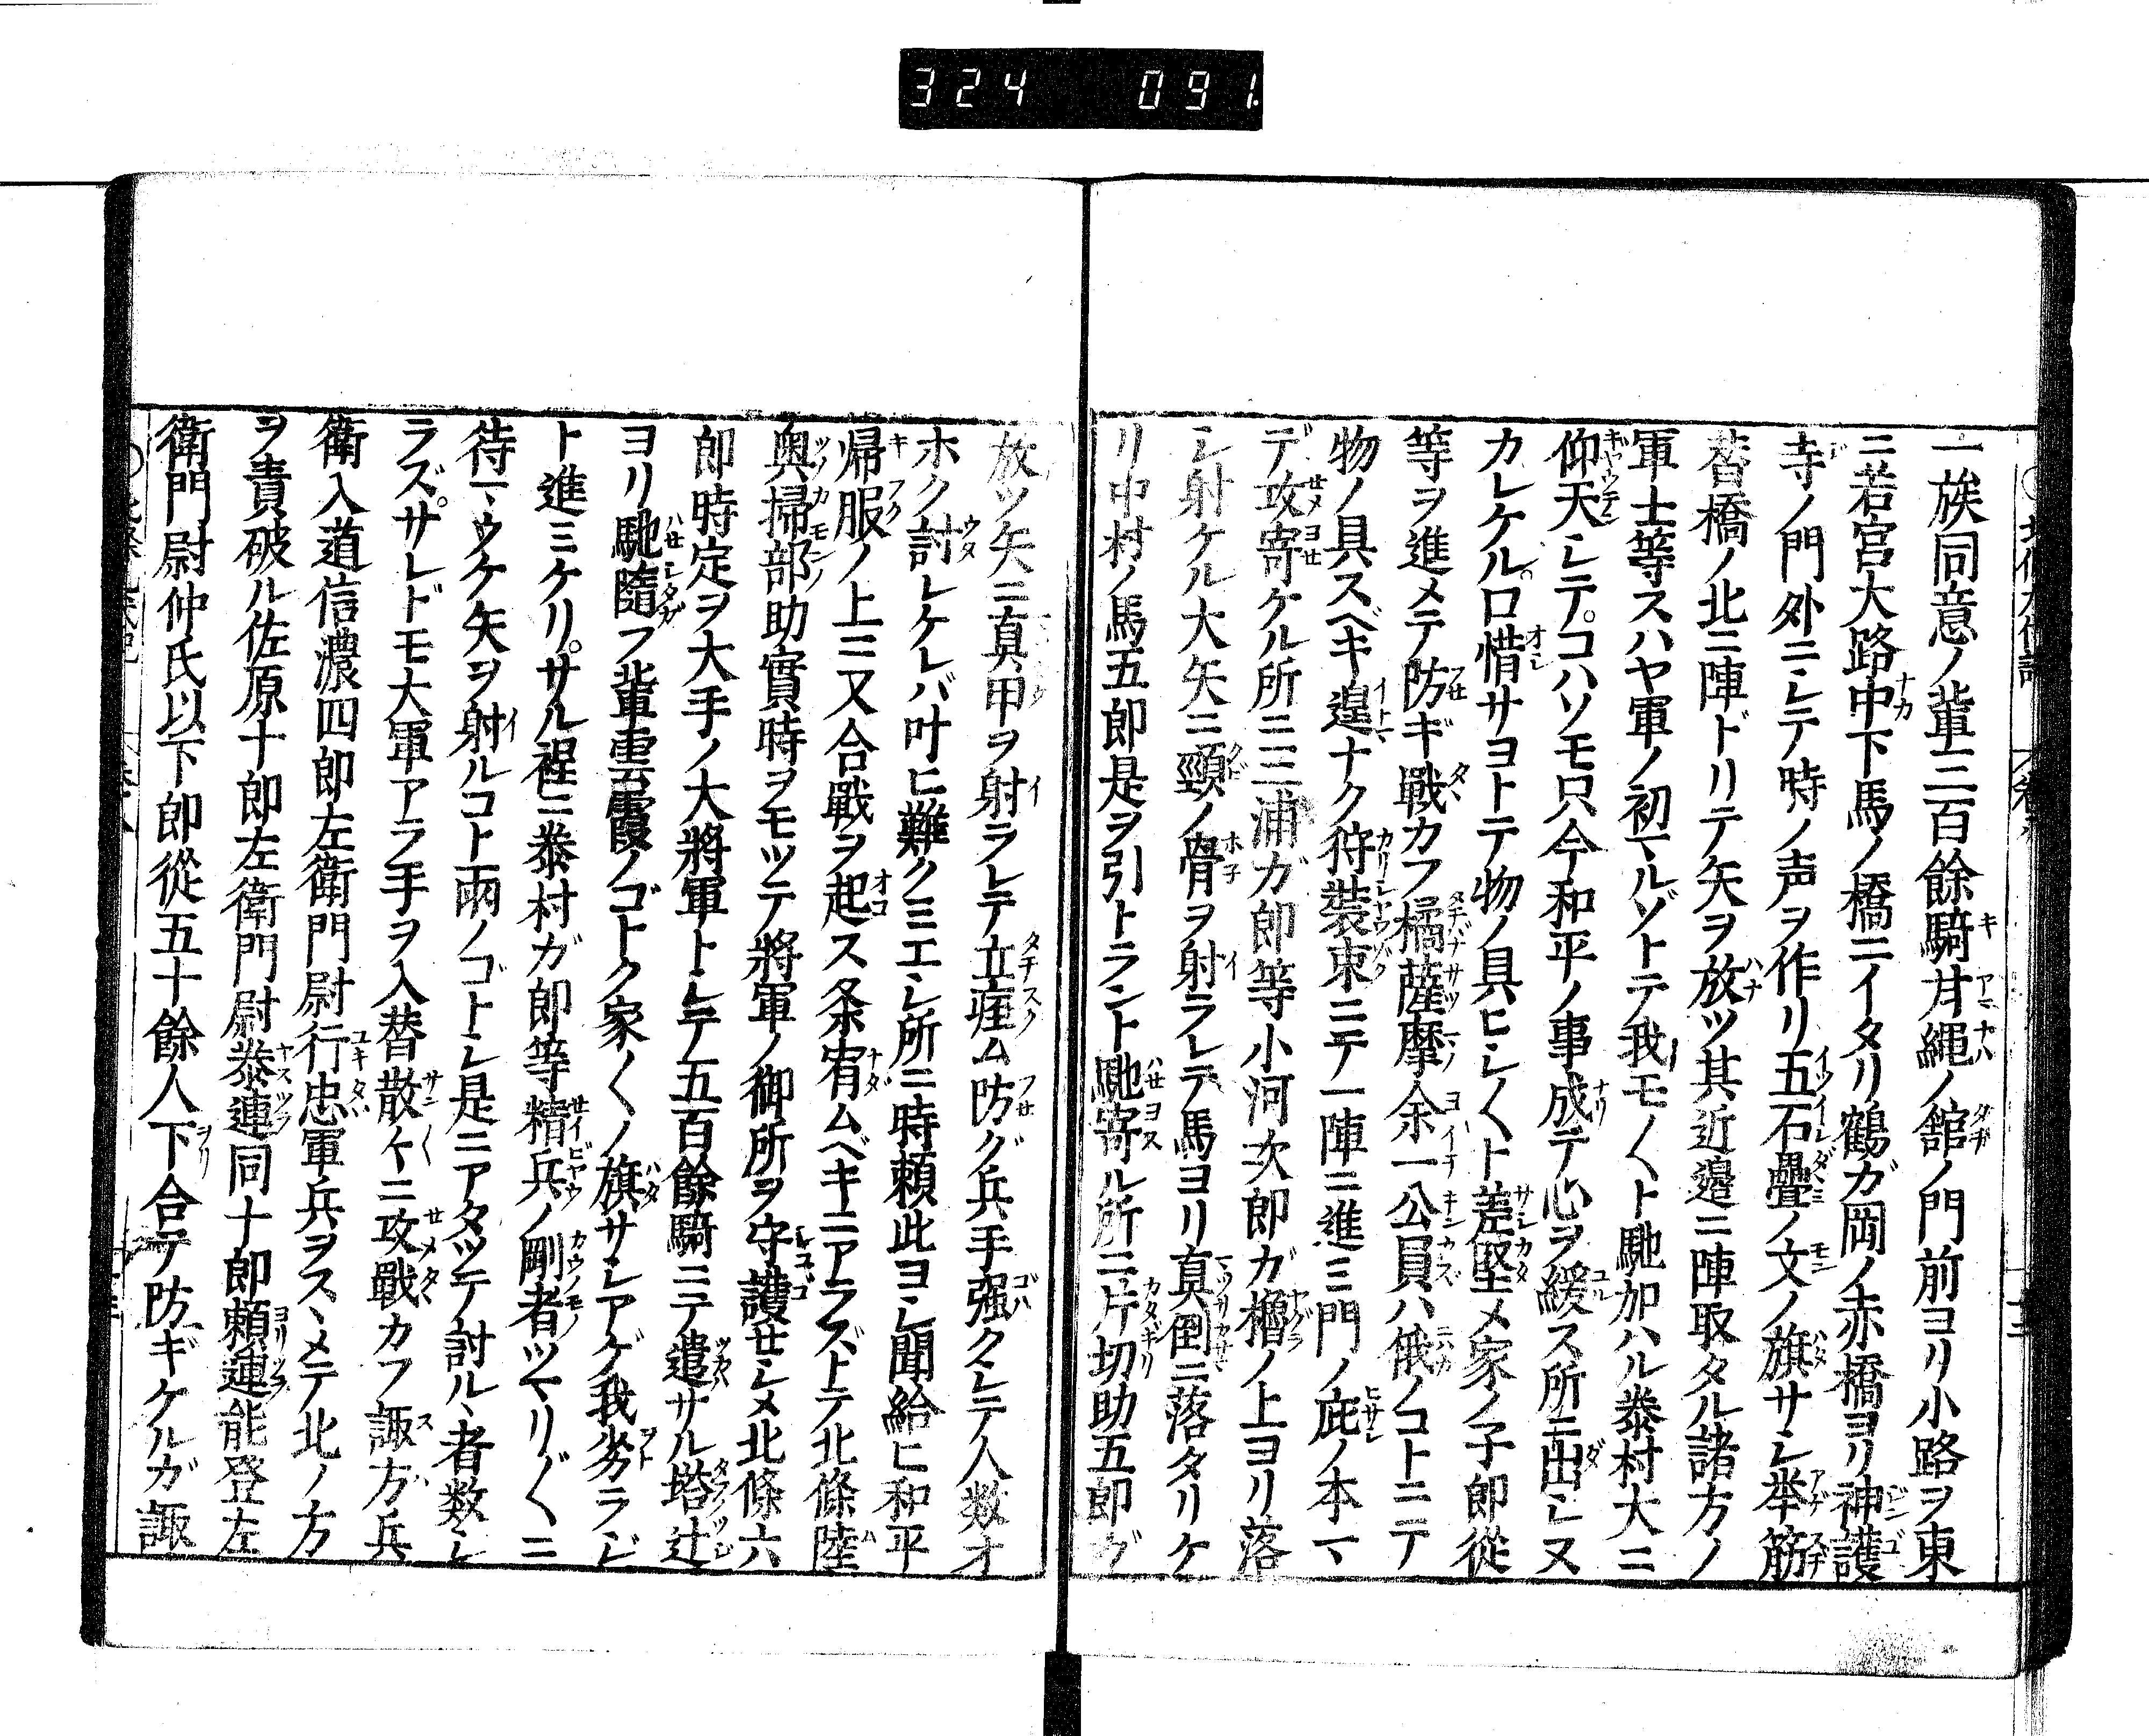 324 091
一族同意ノ輩三百餘騎甘縄ノ舘ノ門前ヨリ小路ヲ東
ニ若宮大路中下馬ノ橋ニイタリ鶴ガ岡ノ赤橋ヨリ神護
寺ノ門外ニシテ時ノ声ヲ作リ五石疊ノ文ノ旗サシ举筋
替橋ノ北ニ陣ドリテ矢ヲ放ツ其近邉ニ陣取タル諸方ノ
軍士等スハヤ軍ノ初マルゾトテ我モ〱ト馳加ハル泰村大ニ
仰天シテ。コハソモ只今和平ノ事成テ心ヲ緩ス所ニ出シヌ
カレケル。口惜サヨトテ物ノ具ヒシ〱ト差堅メ家ノ子郎從
等ヲ進メテ防ギ戰カフ橘薩摩余一公員ハ俄ノコトニテ
物ノ具スベキ遑ナク狩裝束ニテ一陣ニ進ミ門ノ庇ノ本マ
デ攻寄ケル所ニ三浦ガ郎等小河次郎ガ櫓ノ上ヨリ落
シ射ケル大矢ニ頸ノ骨ヲ射ラレテ馬ヨリ真倒ニ落タリケ
リ中村ノ馬五郎是ヲ引トラント馳寄ル所ニ片切助五郎ガ
放ツ矢ニ真甲ヲ射ラレテ立ム防グ兵手强クシテ人数オ
ホク討レケレバ叶ヒ難クミエシ所ニ時頼此ヨシ聞給ヒ和平
帰服ノ上ニ又合戰ヲ起ス条宥ムベキニアラズトテ北條陸
奥掃部助實時ヲモツテ將軍ノ御所ヲ守護セシメ北條六
郎時定ヲ大手ノ大將軍トシテ五百餘騎ニテ遣サル塔辻
ヨリ馳隨フ輩雲霞ノゴトク家〱ノ旗サシアゲ我劣ラジ
ト進ミケリ。サル程ニ泰村ガ郎等精兵ノ剛者ツマリ〲ニ
待マウケ矢ヲ射ルコト雨ノゴトシ是ニアタツテ討ル丶者数シ
ラズ。サレドモ大軍アラ手ヲ入替散ケニ攻戰カフ諏方兵
衛入道信濃四郎左衛門尉行忠軍兵ヲス丶メテ北ノ方
ヲ責破ル佐原十郎左衛門尉泰連同十郎頼連能登左
衛門尉仲氏以下郎從五十餘人下合テ防ギケルガ諏